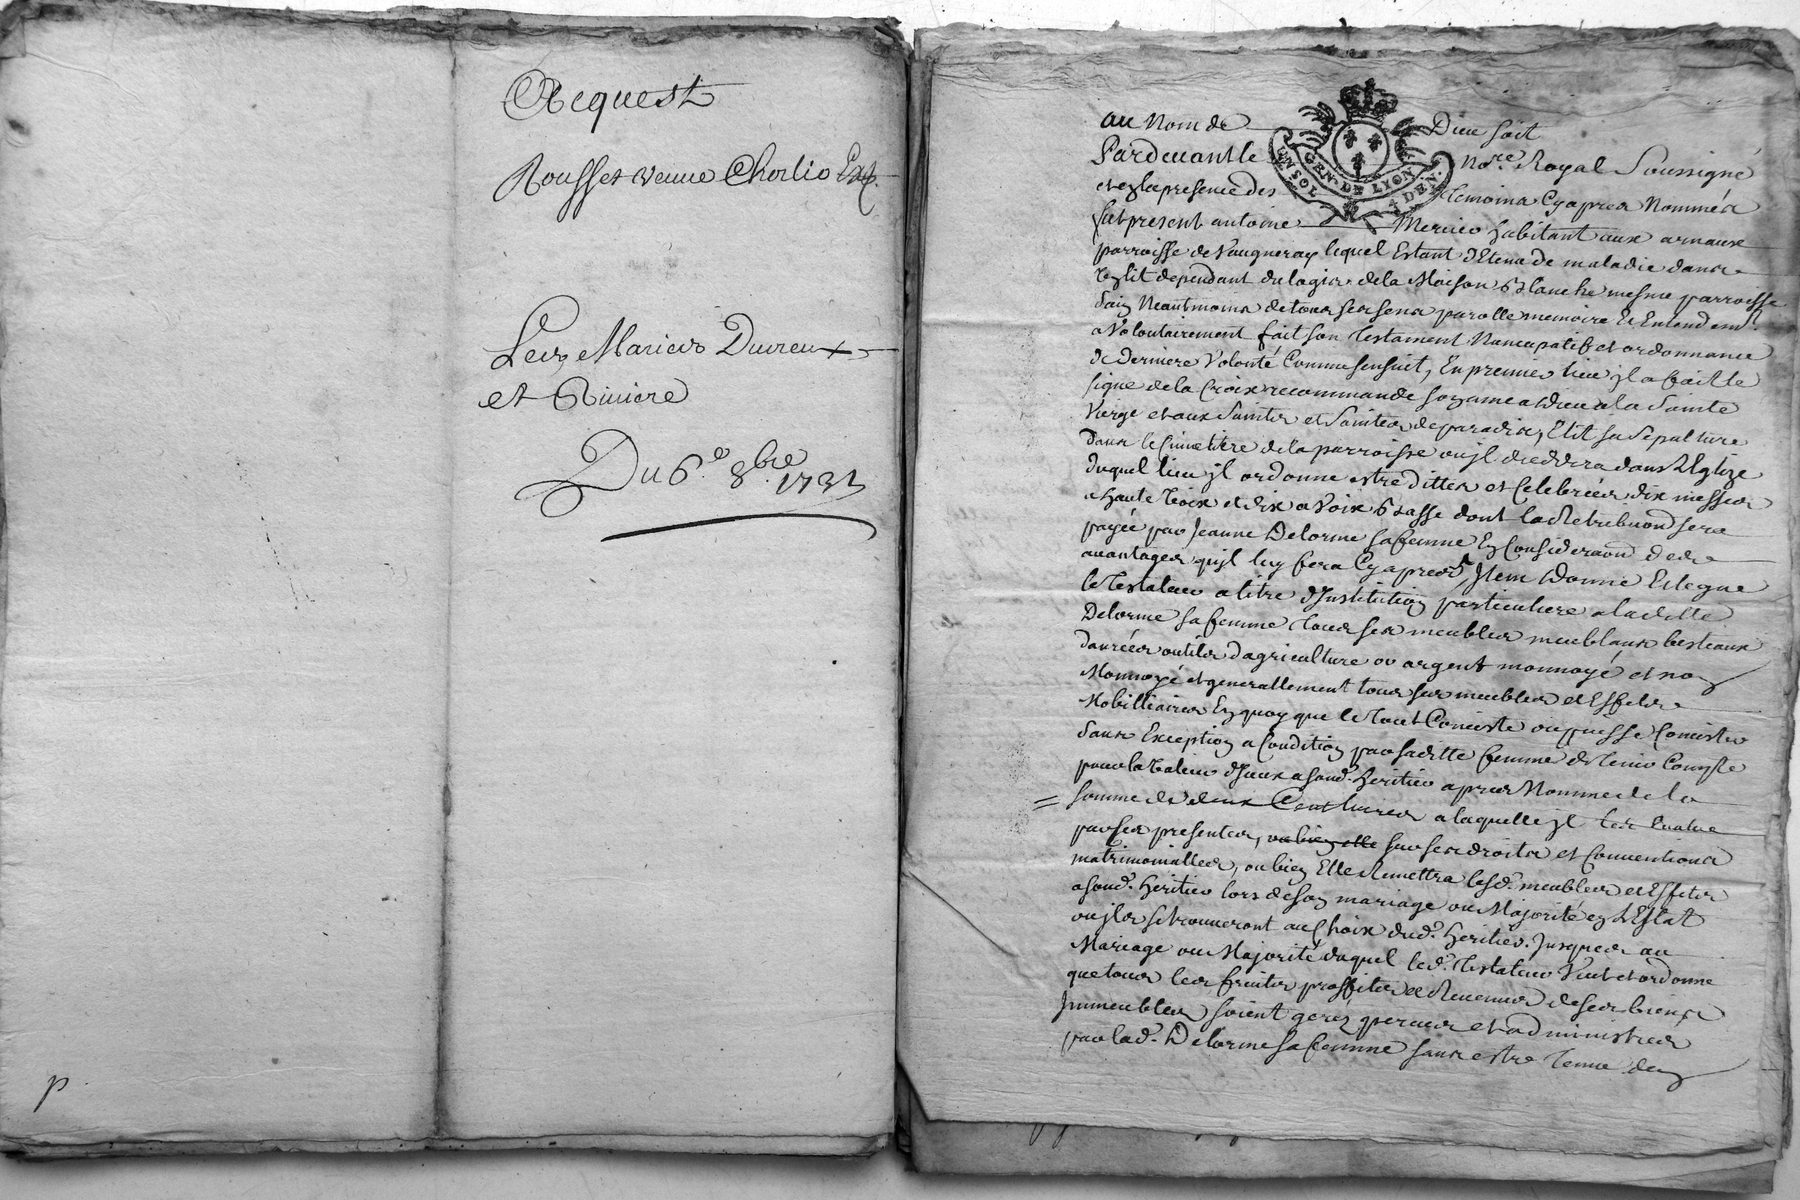 Request
Rousset veuve Chorlio
Les Maries Duvreux
et Riviere
Du 6e. 8bre. 1731
p
au Nom de Dieu soit
GEN. DE LYON
UN SOL
4 DEN.
Pardevant le Nore. Royal Soussigné
et en la presence des temoins Cyapres Nommés
fut present antoine Mercier habitant aux arnaux
parroisse de Vaugneray lequel Estant detenu de maladie dans
un lit dependant du logis de la Maison blanche mesme parroisse
sain Neantmoins de tous ses sens parolle memoire Et Entendemt.
a Volontairement fait son testament Nuncupatif et ordonnance
de derniere Volonté Comme sensuit, En premier lieu jl a fait le
signe de la Croix recommandé son ame a dieu a la Sainte
Vierge et aux Saints et Saintes de paradix, Elit sa Sepulture
dans le Cimetiere de la parroisse ou jl decedera dans LEglize
duquel lieu jl ordonne estre dittes et Celebrées dix messes
a haute Voix et dix a Voix basse dont la Retribuon sera
payée par Jeanne Delorme sa femme En Consideraon des
avantages qujl luy fera Cyapres, Jtem donne Et legue
le Testateur a titre dJnstitution particuliere a laditte
Delorme sa femme tous ses meubles meublans bestiaux
danrées outils dagriculture or argent monnoyé et non
Monnoyé et generallement tous ses meubles et Effets
Mobilliaires En quoy que le tout Conciste ou puisse Concister
sans Exception a Condition par saditte femme de tenir Compte
pour la Valeur dJceux a sond. heritier apres Nommé de la
somme de deux Cent livres a laquelle jl les Evalue
par ses presentes, ou bien elle sur ses droits et Conventions
matrimonialles, ou bien Elle Remettra lesd. meubles et Effets
a sond. heritier lors de son mariage ou Majorité en LEstat
ou jls se trouveront au Choix dud. heritier. Jusques au
Mariage ou Majorité duquel led. Testateur Veut et ordonne
que tous les fruits proffits et Revenus de ses biens
Jmmeubles soient gerés perçus et administrés
par lad. Delorme sa femme sans estre tenue den